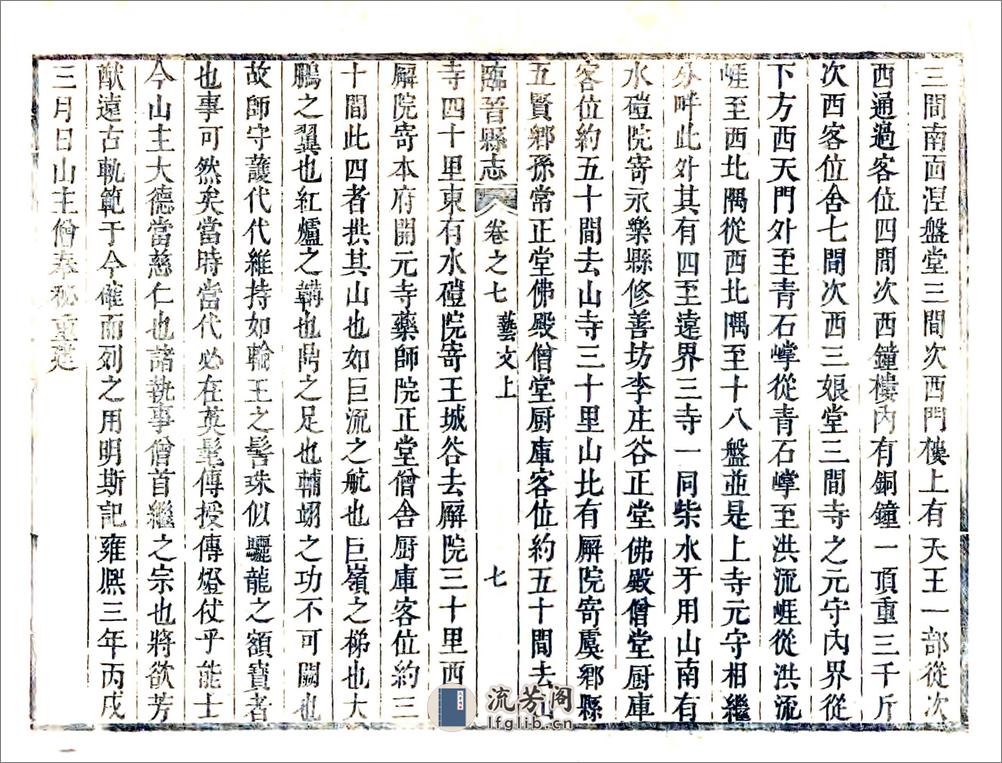 三間南面涅盤堂三間次西門樓上有天王一部從次
西通過客位四間次西鐘樓內有銅鐘一頂重三千斤
次西客位舍七間次西三娘堂三間寺之元守內界從
下方西天門外至青石㟐從青石㟐至洪流崕從洪流
崕至西北隅從西北隅至十八盤並是上寺元守相繼
外畔此外其有四至遠界三寺一同柴水牙用山南有
水磑院寄永樂縣修善坊李庄谷正堂佛殿僧堂厨庫
客位約五十間去山寺三十里山比有廨院寄虞鄉縣
五賢鄉孫常正堂佛殿僧堂厨庫客位約五十間去山
臨晉縣志 卷之七 藝文上 七
寺四十里東有水磑院寄王城谷去廨院三十里西一
廨院寄本府開元寺藥師院正堂僧舍厨庫客位約三
十間此四者拱其山也如巨流之航也巨嶺之梯也大
鵬之翼也紅爐之鞲也鼎之足也輔翊之功不可闕也
故師守護代代維持如輪王之髻珠似驪龍之額寶者
也事可然矣當時當代必在英髦傳授傳燈仗乎能士
今山主大德當慈仁也諸執事僧首繼之宗也將欲芳
猷遠古軌範于今確而刻之用明斯記雍熈三年丙戌
三月日山主僧奉秘重建
流芳阁
lfglib.cn